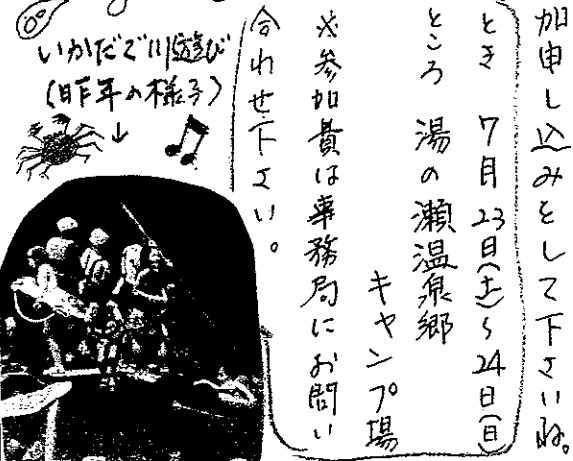 加申し込みをして下さいね。
とき 7月23日(土)~24日(日)
ところ 湯の瀬温泉郷
キャンプ場
※参加費は事務局にお問い
合わせ下さい。
いかだで川遊び
(昨年の様子)